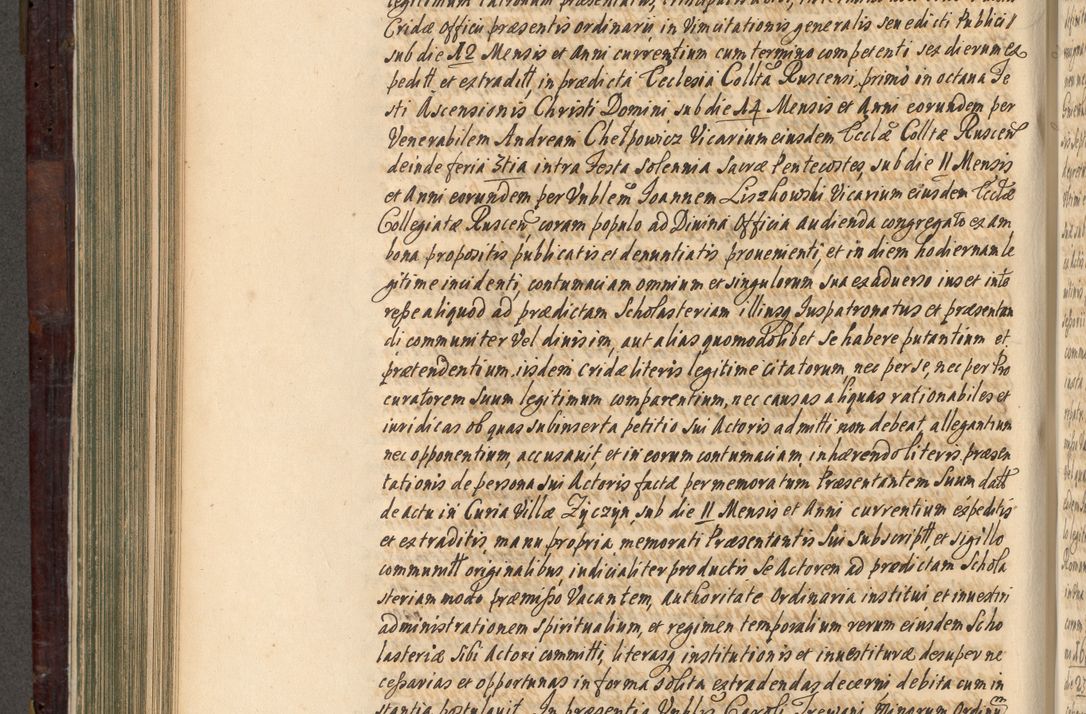 legitimum Patronum præsentatus, principalis
Cridæ Officii præsentis ordinarii, in vim citationis generalis sen edicti Publici
sub die 12 Mensis et Anni currentium cum termino competenti sex dierum ex
peditt et extraditt, in prædicta Ecclesia Collta Ruscensi, primò in octava Fe
sti Ascensionis Christi Domini, sub die 14 Mensis et Anni eorundem per
Venerabilem Andream Chełpowicz Vicarium eiusdem Ecclæ Colltæ Ruscen
deinde feria 3tia intra Festa solennia Sacræ Pentecostes, sub die 11 Mensis
et Anni eorundem per Vnblem Joannem Liszkowski Vicarium eiusdem Ecclæ
Collegiatæ Ruscen coram populo ad Divina Officia audienda congregato ex am
bona propositis publicatis et denuntiatis provenienti, et in diem hodiernam le
gitime incidenti, contumaciam omnium et singulorum sua ex adverso ius et inte
resse aliquod ad prædictam Scholasteriam illiusq Juspatronatus et præsentan
di communiter vel divisim, aut alias quomodolibet se habere putantium et
prætendentium, iisdem Cridæ literis legitime citatorum, nec per se, nec per Pro
curatorem suum legitimum comparentium, nec causas aliquas rationabiles et
iuridicas ob quas subinserta petitio sui Actoris admitti non debeat, allegantium
nec opponentium, accusavit, et in eorum contumaciam, inhærendo literis præsen
tationis de persona sui Actoris factæ per memoratum Præsentantem suum datt
de actu in Curia Villæ Zyczyn, sub die 11 Mensis et Anni currentium expeditis
et extraditis, manu propria memorati Præsentantis sui subscriptt, et sigillo
communitt originalibus, iudicialiter productis se Actorem ad prædictam Schola
steriam modo præmisso Vacantem, Authoritate Ordinaria institui et investiri
administrationem spiritualium, et regimen temporalium rerum eiusdem Scho
lasteriæ sibi Actori committi, literasq institutionis et investituræ desuper ne
cessarias et opportunas in forma solita extradendas decerni debita cum in
stantia postulavit. In præsentia Vnblis Caroli Minorum Ordinu